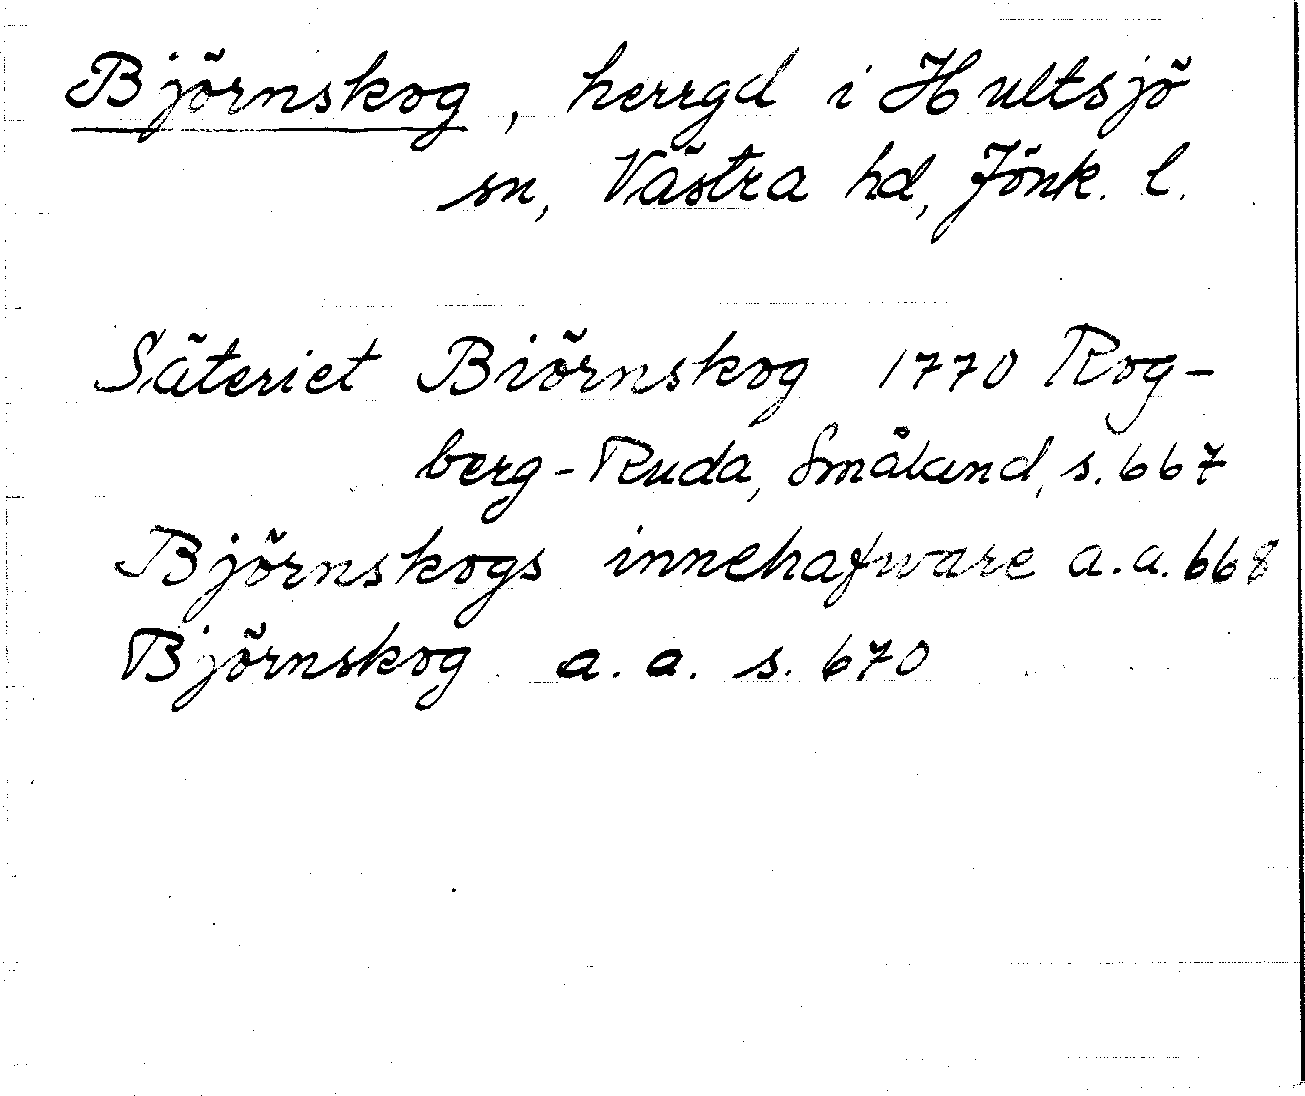 Björnskog, herrgd i Hultsjö
sn, Västra hd, Jönk. l.
Säteriet Biörnskog 1770 Rog-
berg-Ruda, Småland, s. 667
Björnskogs innehafware a.a. 668
Björnskog a. a. s. 670